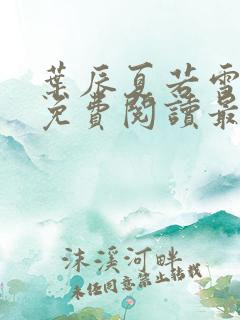 葉辰夏若雪
免費閱讀最
沫溪河畔
未經同意禁止轉載